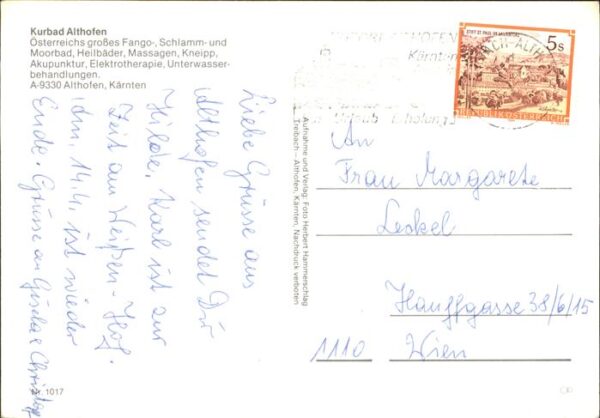 Kurbad Althofen
Österreichs großes Fango-, Schlamm- und
Moorbad, Heilbäder, Massagen, Kneipp,
Akupunktur, Elektrotherapie, Unterwasser-
behandlungen.
A-9330 Althofen, Kärnten
Liebe Grüsse aus
Althofen sendet Dir
Hilde, Karl ist zur
Zeit am Weißen-Hof.
Am 14.4. ist wieder
Ende. Grüsse an Gisela
Nr. 1017
Aufnahme und Verlag: Foto Herbert Hammerschlag
Treibach – Althofen, Kärnten. Nachdruck verboten
Kärnten
Urlaub Erholung
STIFT ST. PAUL IM LAVANTTAL
5 S
REPUBLIK ÖSTERREICH
An
Frau Margarete
Leckel
Hauffgasse 38/6/15
1110 Wien